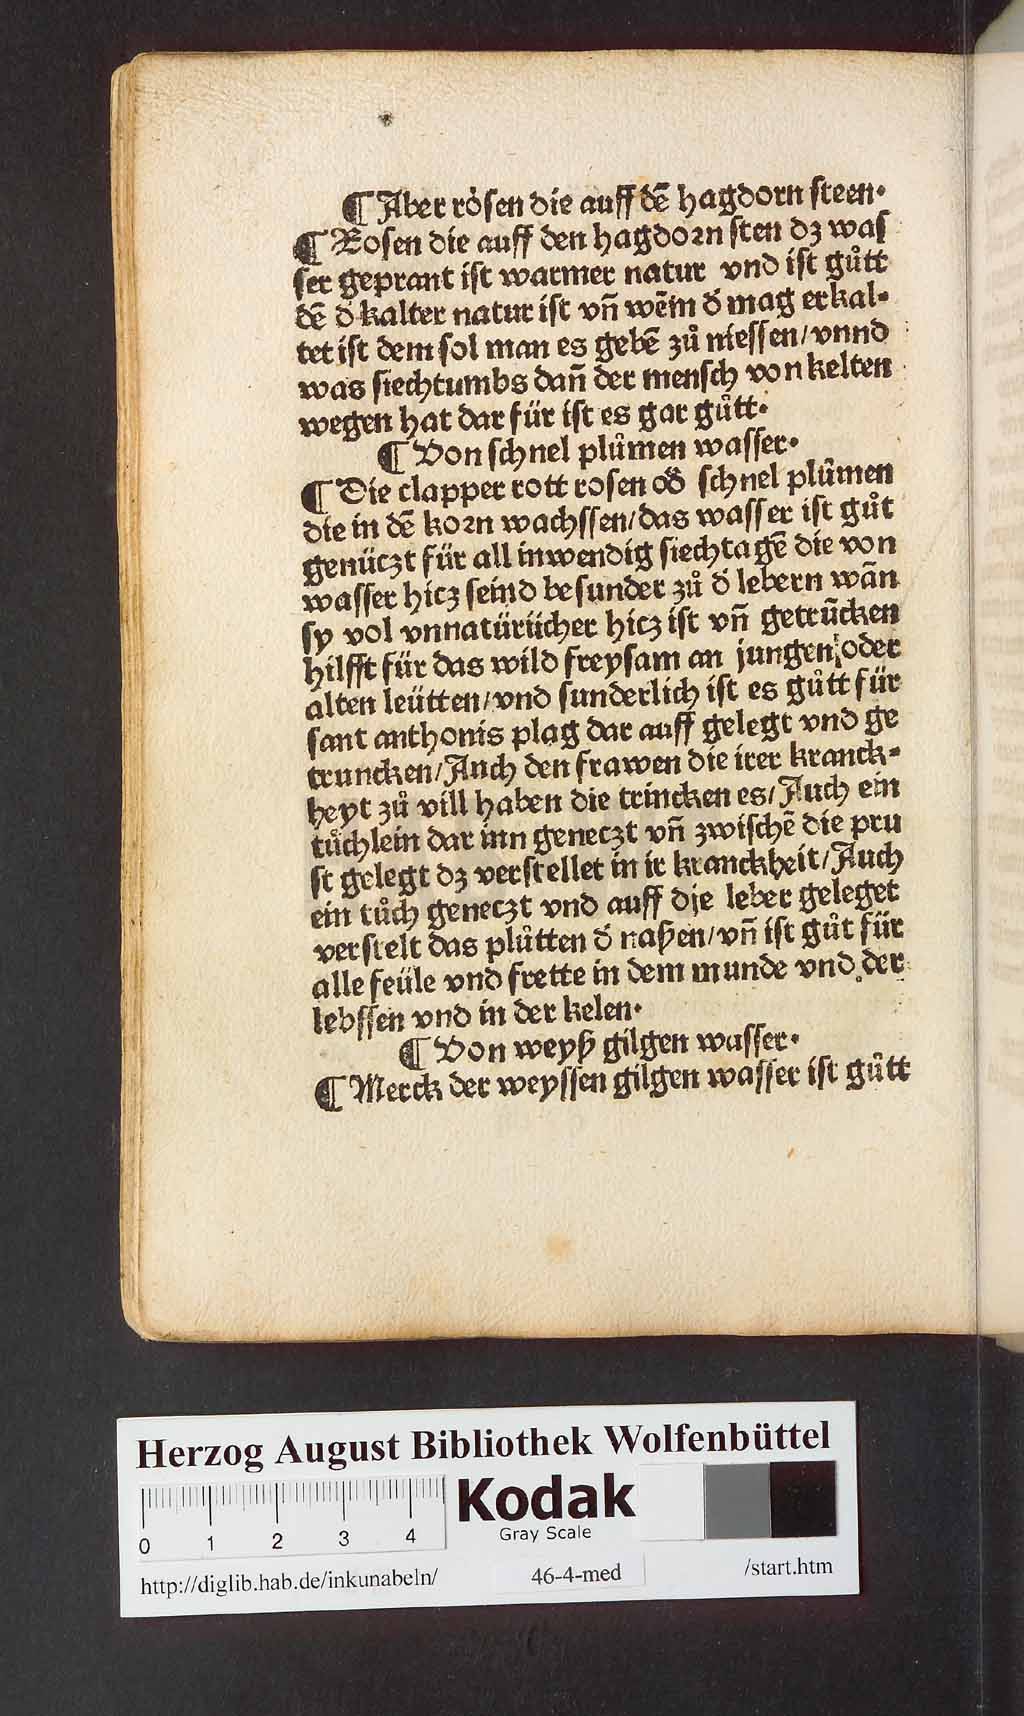 ¶ Aber rösen die auff dē hagdorn steen·
¶ Rosen die auff den hagdorn sten dz was
ser geprant ist warmer natur vnd ist gůtt
dē d̕ kalter natur ist vn̄ wēm d̕ mag erkal⸗
tet ist dem sol man es gebē zů niessen/vnnd
was siechtumbs dan̄ der mensch von kelten
wegen hat dar für ist es gar gůtt·
¶ Von schnel plůmen wasser·
¶ Die clapper rott rosen od̕ schnel plůmen
die in dē korn wachssen/das wasser ist gůt
genüczt für all inwendig siechtagē die von
wasser hicz seind besunder zů d̕ lebern wān
sy vol vnnatürlicher hicz ist vn̄ getrūcken
hilfft für das wild freysam an jungen oder
alten leütten/vnd sunderlich ist es gůtt für
sant anthonis plag dar auff gelegt vnd ge
truncken/Auch den frawen die irer kranck⸗
heyt zů vill haben die trincken es/Auch ein
tůchlein dar inn geneczt vn̄ zwischē die pru
st gelegt dz verstellet in ir kranckheit/Auch
ein tůch geneczt vnd auff die leber geleget
verstelt das plůtten d̕ naßen/vn̄ ist gůt für
alle feüle vnd frette in dem munde vnd der
lebssen vnd in der kelen·
¶ Von weyß gilgen wasser·
¶ Merck der weyssen gilgen wasser ist gůtt
Herzog August Bibliothek Wolfenbüttel
0 1 2 3 4
Kodak
Gray Scale
http://diglib.hab.de/inkunabeln/ 46-4-med /start.htm